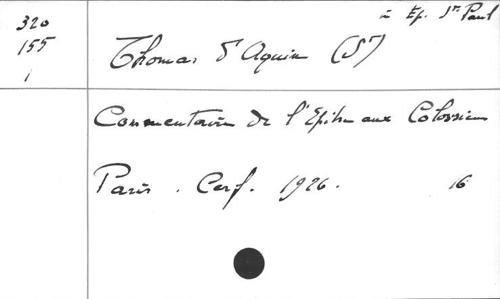 320
155
1
in Ep. Sti Pauli
Thomas d'Aquin (St)
Commentaire de l'Epitre aux Colossiens
Paris . Cerf . 1926 . 16